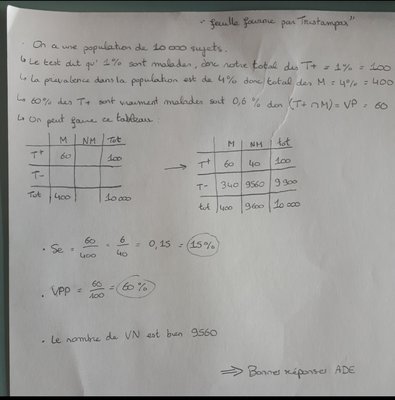 "feuille fournie par Tristampar"
· On a une population de 10 000 sujets.
↳ Le test dit qu' 1% sont malades, donc notre total des T+ = 1% = 100
↳ La prévalence dans la population est de 4% donc total des M = 4% = 400
↳ 60% des T+ sont vraiment malades soit 0,6% donc (T+ ∩ M) = VP = 60
↳ On peut faire ce tableau:
M NM Tot
T+ 60 100
T-
Tot 400 10 000
→
M NM tot
T+ 60 40 100
T- 340 9560 9 900
tot 400 9600 10 000
· Se = 60/400 = 6/40 = 0,15 = 15%
· VPP = 60/100 = 60%
· Le nombre de VN est bien 9560
⇒ Bonnes réponses ADE